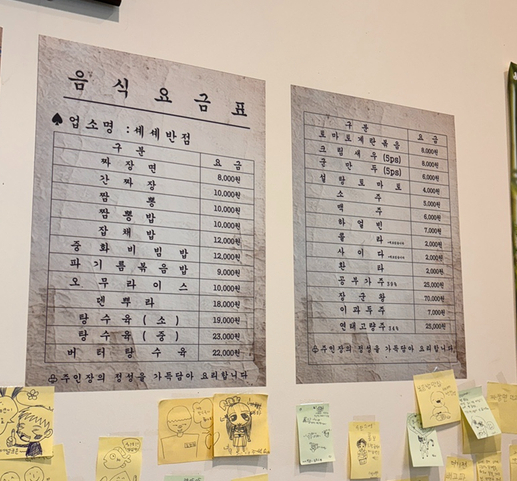 음식요금표
♠업소명 :세세반점
구분 요금
짜장면 8,000원
간짜장 10,000원
짬뽕 10,000원
짬뽕밥 10,000원
잡채밥 12,000원
중화비빔밥 12,000원
파기름볶음밥 9,000원
오무라이스 10,000원
덴뿌라 18,000원
탕수육(소) 19,000원
탕수육(중) 23,000원
버터탕수육 22,000원
♧주인장의 정성을 가득담아 요리합니다
구분 요금
토마토계란볶음 8,000원
크림새우(5ps) 8,000원
군만두(5ps) 6,000원
설탕토마토 4,000원
소주 5,000원
맥주 6,000원
하얼빈 7,000원
콜라 2,000원
사이다 2,000원
환타 2,000원
공부가주 25,000원
장군왕 70,000원
이과두주 7,000원
연태고량주 25,000원
♧주인장의 정성을 가득담아 요리합니다